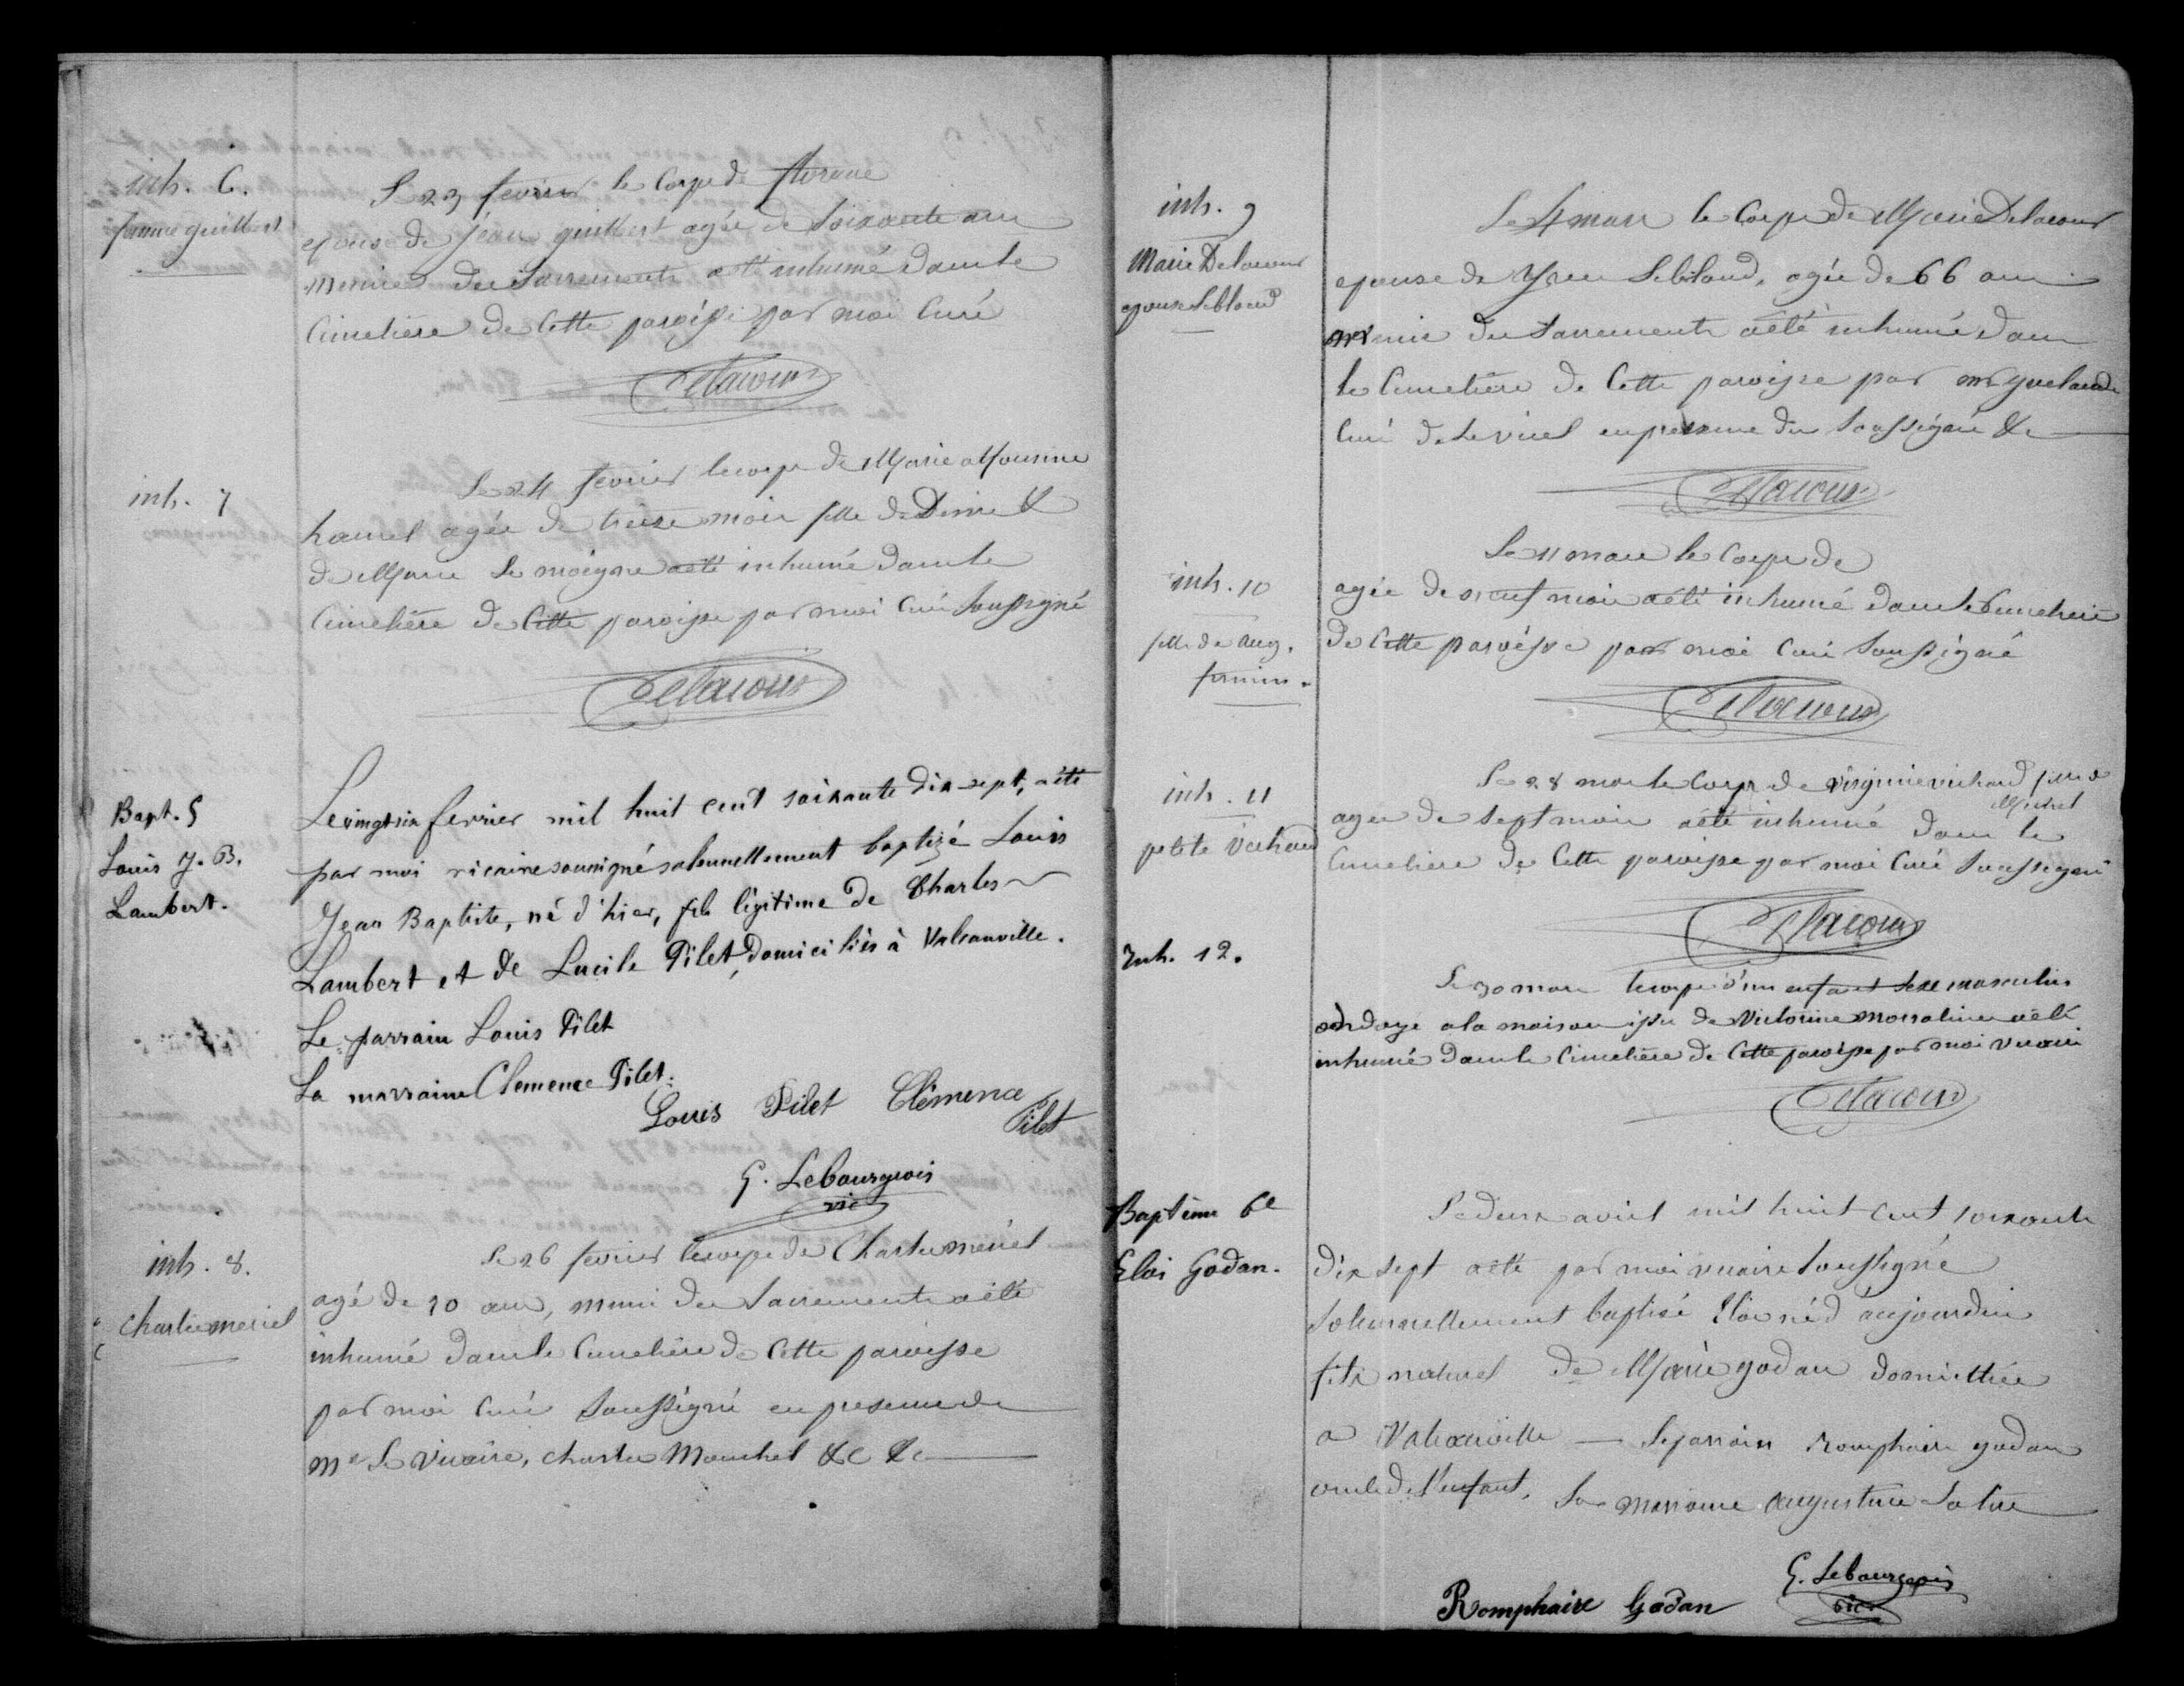 inh. 6.
femme guilbert
Le 23 fevrier le Corps de
epouse de Jean guilbert agée de Soixante ans
munie des Sacrements a été inhumé dans le
Cimetière de Cette paroisse par moi Curé
Delacour
inh. 7
Le 24 fevrier le corps de Marie alfonsine
hamel agée de treize mois fille de Désiré &
de Marie Le moigne a été inhumé dans le
Cimetière de Cette paroisse par moi Curé Soussigné
Delacour
Bapt. 5
Louis J. B.
Lambert.
Le vingt six fevrier mil huit cent soixante dix-sept, a été
par moi vicaire soussigné solennellement baptizé Louis
Jean Baptiste, né d'hier, fils légitime de Charles
Lambert et de Lucile Pilet, domiciliés à Valcanville.
Le parrain Louis Pilet
La marraine Clemence Pilet.
Louis Pilet Clémence
Pilet
G. Lebourgeois
vic
inh. 8.
Charles meriel
Le 26 fevrier le corps de Charles meriel
agé de 70 ans, muni des Sacrements a été
inhumé dans le Cimetière de Cette paroisse
par moi Curé Soussigné en presence de
Mr Le Vicaire, Charles Mouchel &c &c
inh. 9
Marie Delacour
epouse Leblond
Le 4 mars le Corps de Marie Delacour
epouse de Yves Leblond, agée de 66 ans
munie des Sacrements a été inhumé dans
le Cimetière de Cette paroisse par mr
Curé de Le vicel en presence du Soussigné &c
Delacour
inh. 10
fille de Aug.
firmin.
Le 11 mars le Corps de
agée de neuf mois a été inhumé dans le Cimetière
de Cette paroisse par moi Curé Soussigné
Delacour
inh. 11
petite Vichard
Le 28 mars le Corps de Virginie vichard fille de
Michel
agée de Sept mois a été inhumé dans le
Cimetière de Cette paroisse par moi Curé Soussigné
Delacour
Inh. 12.
Le 30 mars le corps d'un enfant Sexe masculin
ondoyé a la maison issu de Victorine a été
inhumé dans le Cimetière de Cette paroisse par moi vicaire
Delacour
Baptême 6e
Eloi Godan.
Le deux avril mil huit cent soixante
dix sept a été par moi vicaire Soussigné
Solennellement baptisé Eloi né d'aujourdui
fils naturel de Marie godan domiciliée
a Valcanville — Le parrain romphaire godan
oncle de l'enfant, La marraine augustine
Romphaire Godan
G. Lebourgeois
vic